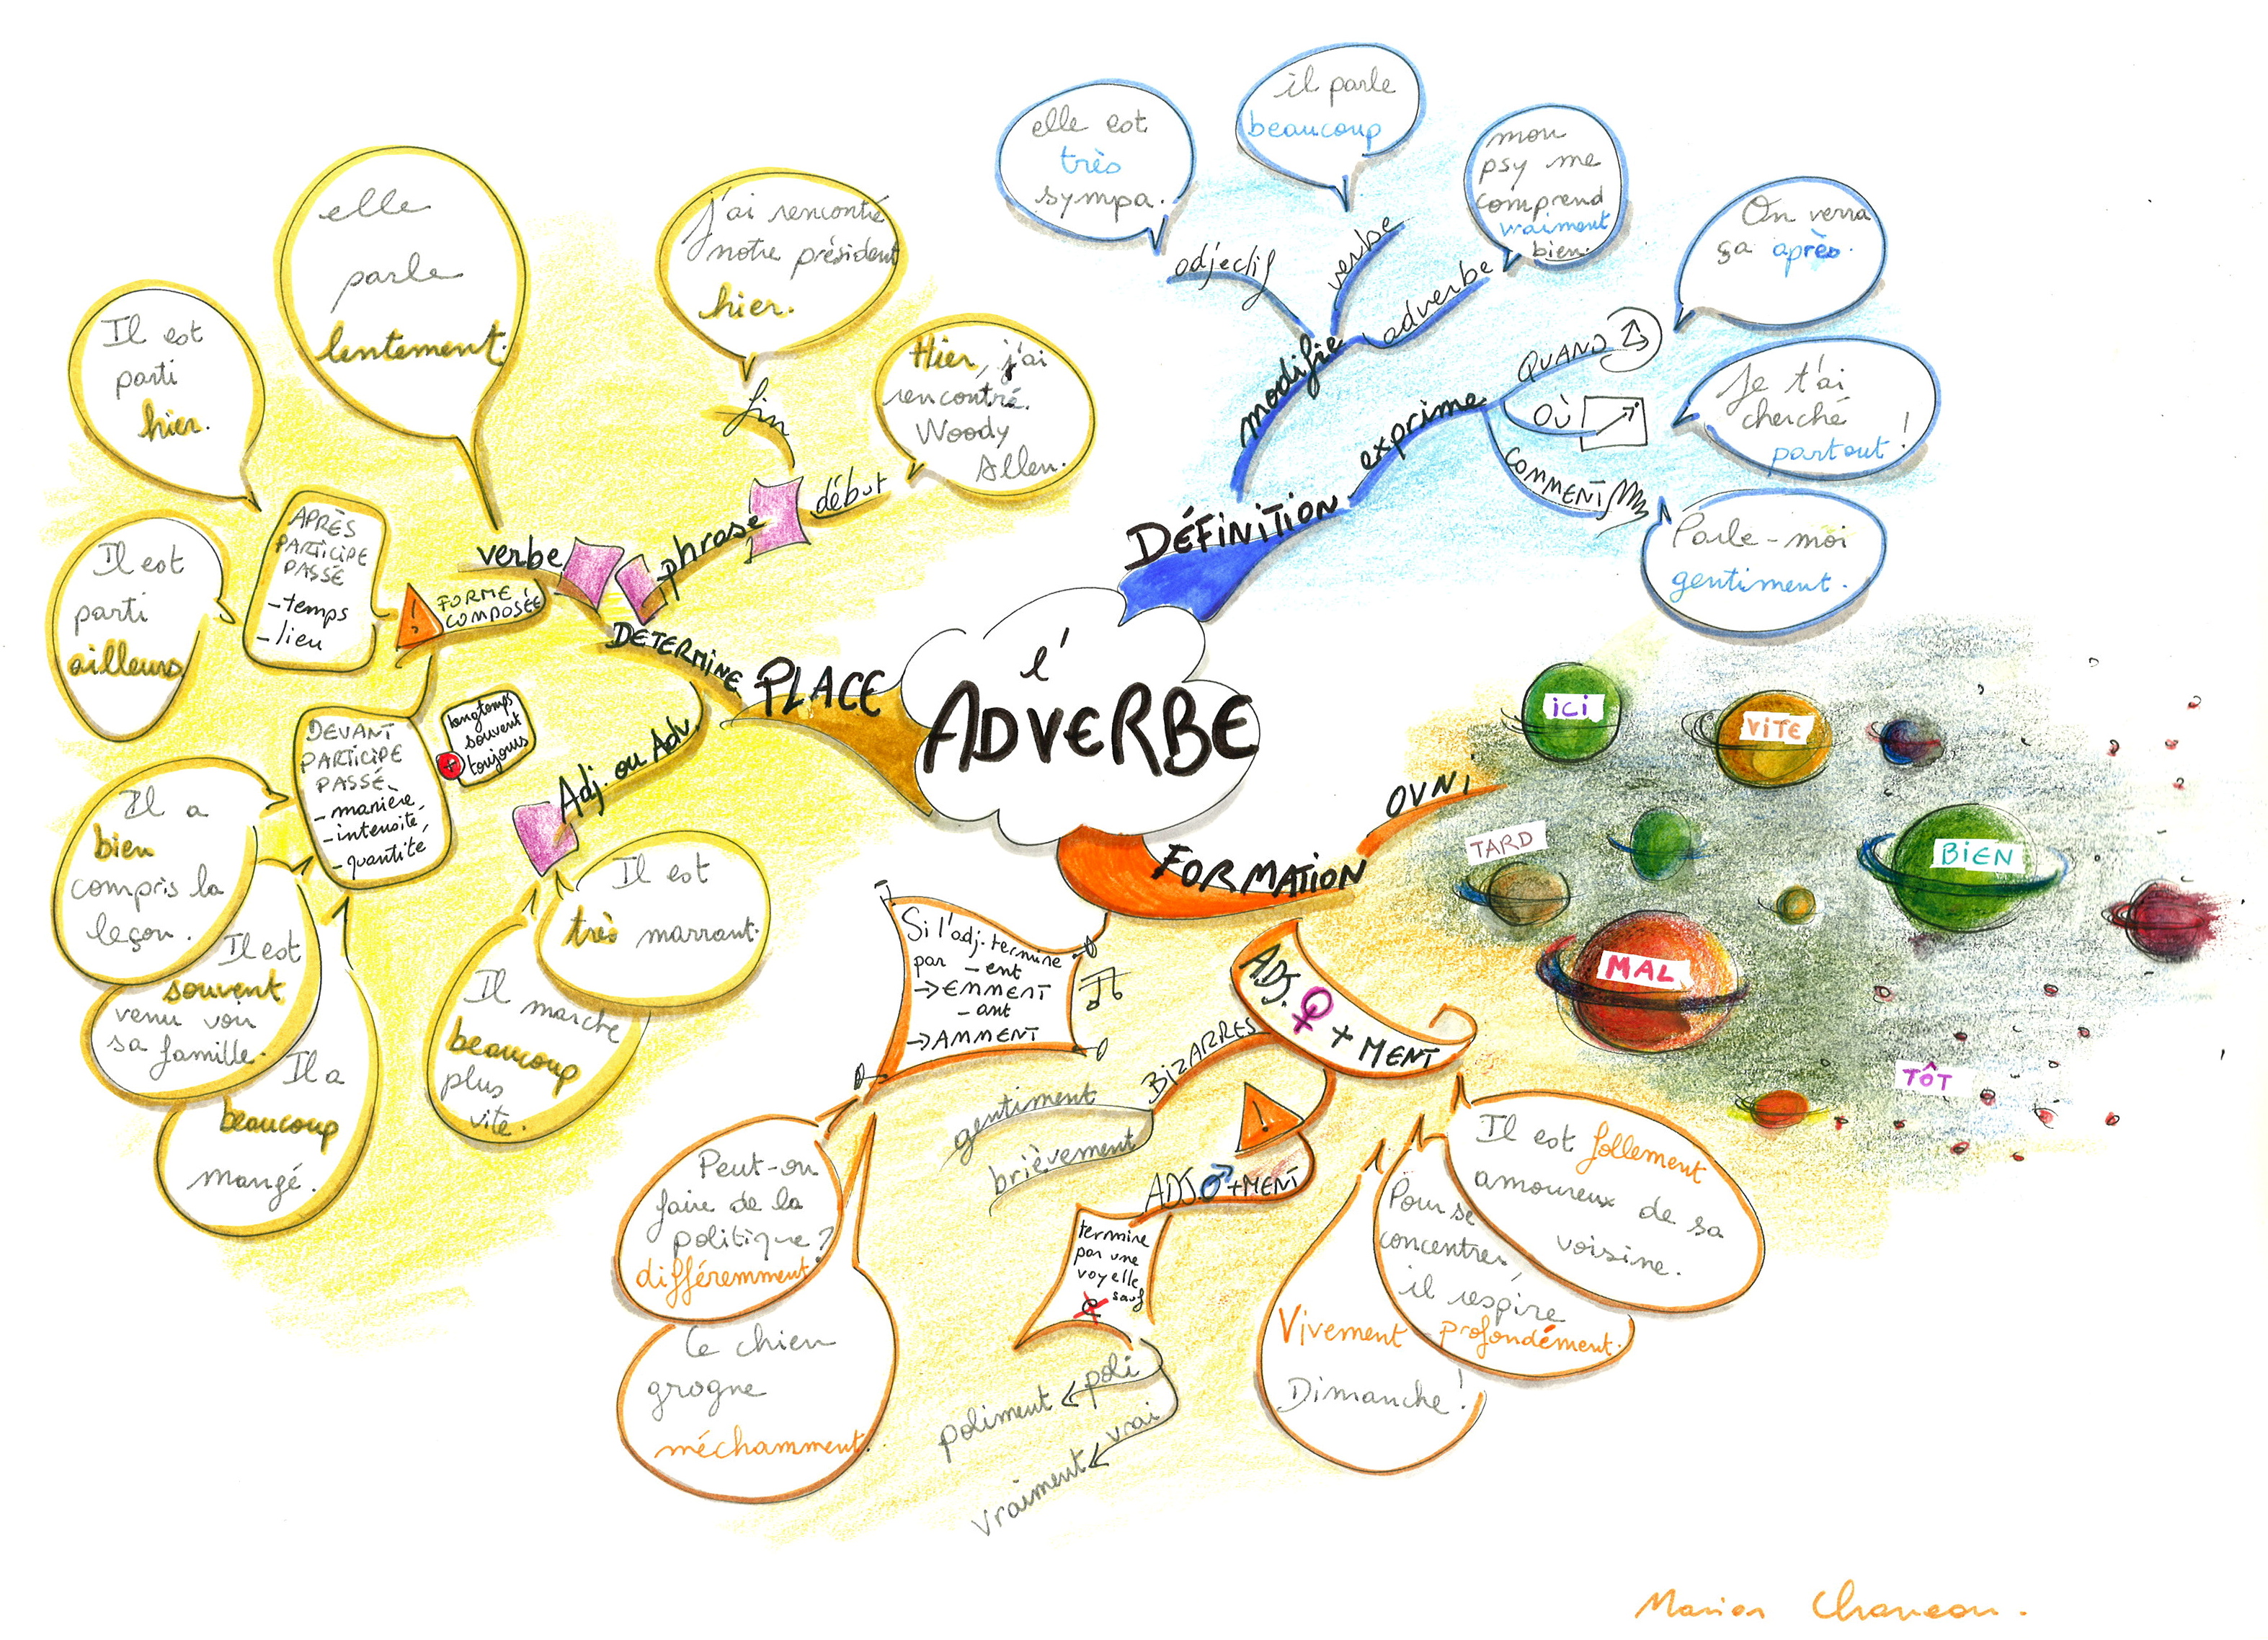 l'
ADVERBE
DÉFINITION
modifie
adjectif
elle est
très
sympa.
verbe
il parle
beaucoup
adverbe
mon
psy me
comprend
vraiment
bien.
exprime
QUAND
On verra
ça après.
OÙ
Je t'ai
cherché
partout !
COMMENT
Parle-moi
gentiment.
FORMATION
OVNI
ICI
VITE
TARD
BIEN
MAL
TÔT
ADJ. ♀ + MENT
Il est follement
amoureux de sa
voisine.
Pour se
concentrer,
il respire
profondément.
Vivement
Dimanche !
BIZARRES
gentiment
brièvement
!
ADJ ♂ +MENT
termine
par une
voyelle
sauf
e
poli
poliment
vrai
vraiment
Si l'adj. termine
par -ent
→ EMMENT
- ant
→ AMMENT
Peut-on
faire de la
politique ?
différemment!
Ce chien
grogne
méchamment.
PLACE
DETERMINE
phrase
début
Hier, j'ai
rencontré
Woody
Allen.
fin
J'ai rencontré
notre président
hier.
verbe
elle
parle
lentement.
!
FORME
COMPOSÉE
APRÈS
PARTICIPE
PASSÉ
- temps
- lieu
Il est
parti
hier.
Il est
parti
ailleurs
DEVANT
PARTICIPE
PASSÉ
- manière,
- intensité,
- quantité
+
longtemps
souvent
toujours
Il a
bien
compris la
leçon.
Il est
souvent
venu voir
sa famille.
Il a
beaucoup
mangé.
Adj. ou Adv.
Il est
très marrant.
Il marche
beaucoup
plus
vite.